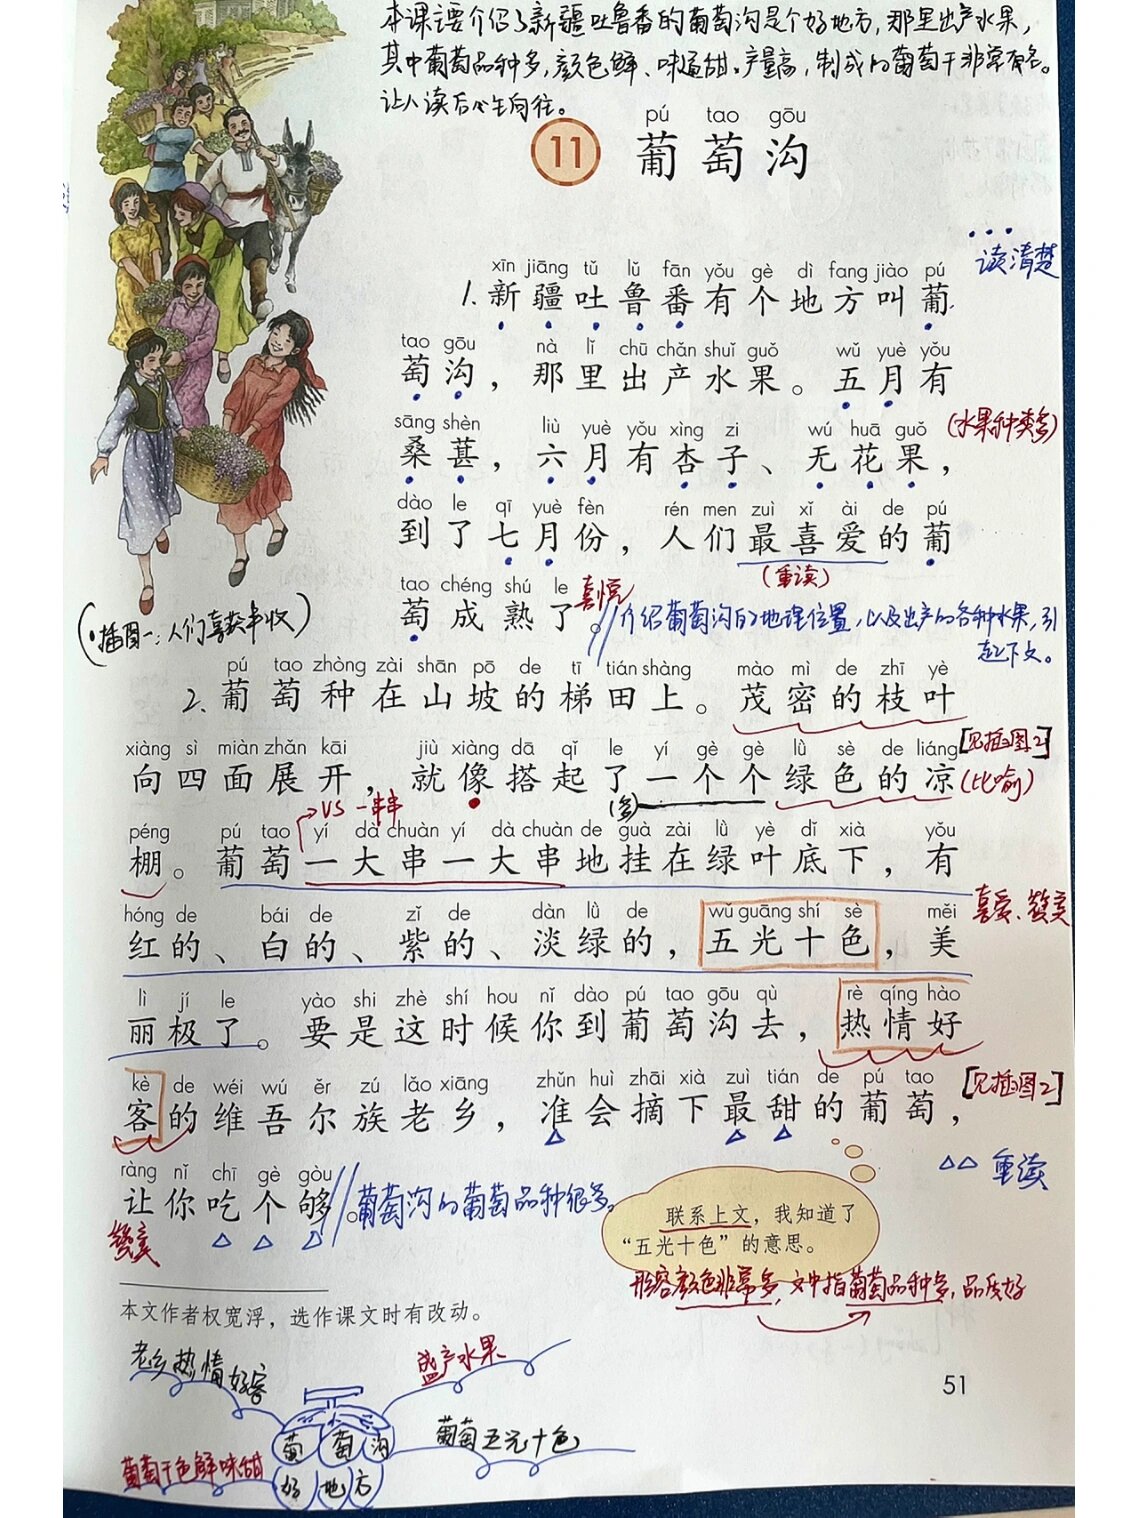 本课主要介绍了新疆吐鲁番的葡萄沟是个好地方,那里出产水果,
其中葡萄品种多,颜色鲜、味道甜、产量高,制成的葡萄干非常有名。
让人读后心生向往。
pú tao gōu
11 葡萄沟
读清楚
xīn jiāng tǔ lǔ fān yǒu gè dì fang jiào pú
1. 新疆吐鲁番有个地方叫葡
tao gōu nà lǐ chū chǎn shuǐ guǒ wǔ yuè yǒu
萄沟，那里出产水果。五月有
(水果种类多)
sāng shèn liù yuè yǒu xìng zi wú huā guǒ
桑葚，六月有杏子、无花果，
dào le qī yuè fèn rén men zuì xǐ ài de pú
到了七月份，人们最喜爱的葡
(重读)
tao chéng shú le
萄成熟了。
喜悦
介绍葡萄沟的地理位置,以及出产的各种水果,引
起下文。
(插图一:人们喜获丰收)
pú tao zhòng zài shān pō de tī tián shàng mào mì de zhī yè
2. 葡萄种在山坡的梯田上。茂密的枝叶
xiàng sì miàn zhǎn kāi jiù xiàng dā qǐ le yí gè gè lǜ sè de liáng
[见插图2]
向四面展开，就像搭起了一个个绿色的凉
(比喻)
(多)
VS 一串串
péng pú tao yí dà chuàn yí dà chuàn de guà zài lǜ yè dǐ xià yǒu
棚。葡萄一大串一大串地挂在绿叶底下，有
喜爱、赞美
hóng de bái de zǐ de dàn lǜ de wǔ guāng shí sè měi
红的、白的、紫的、淡绿的，五光十色，美
lì jí le yào shi zhè shí hou nǐ dào pú tao gōu qù rè qíng hào
丽极了。要是这时候你到葡萄沟去，热情好
kè de wéi wú ěr zú lǎo xiāng zhǔn huì zhāi xià zuì tián de pú tao
[见插图2]
客的维吾尔族老乡，准会摘下最甜的葡萄，
重读
ràng nǐ chī gè gòu
让你吃个够。
葡萄沟的葡萄品种很多。
赞美
联系上文，我知道了
“五光十色”的意思。
形容颜色非常多,文中指葡萄品种多,品质好
本文作者权宽浮，选作课文时有改动。
老乡热情好客
盛产水果
51
葡萄沟
葡萄五光十色
葡萄干色鲜味甜
好地方